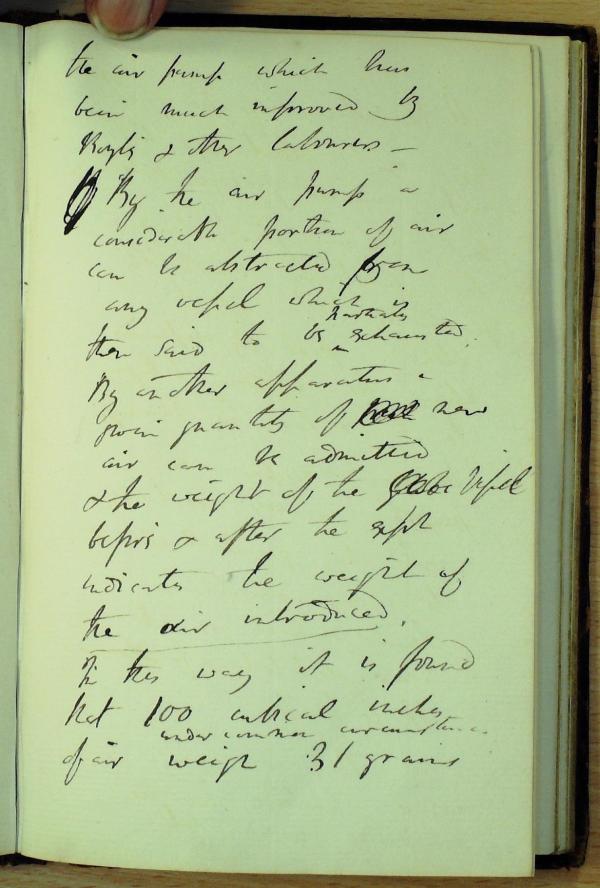 the air pump which has
been much improved by
Boyle & other labourers —
By the air pump a
considerable portion of air
can be abstracted from
any vessel which is
then said to be partially exhausted.
By another apparatus a
given quantity of new
air can be admitted
& the weight of the Globe Vessel
before & after the expt
indicates the weight of
the air introduced.
In this way it is found
that 100 cubical inches
under common circumstances
of air weigh 31 grains